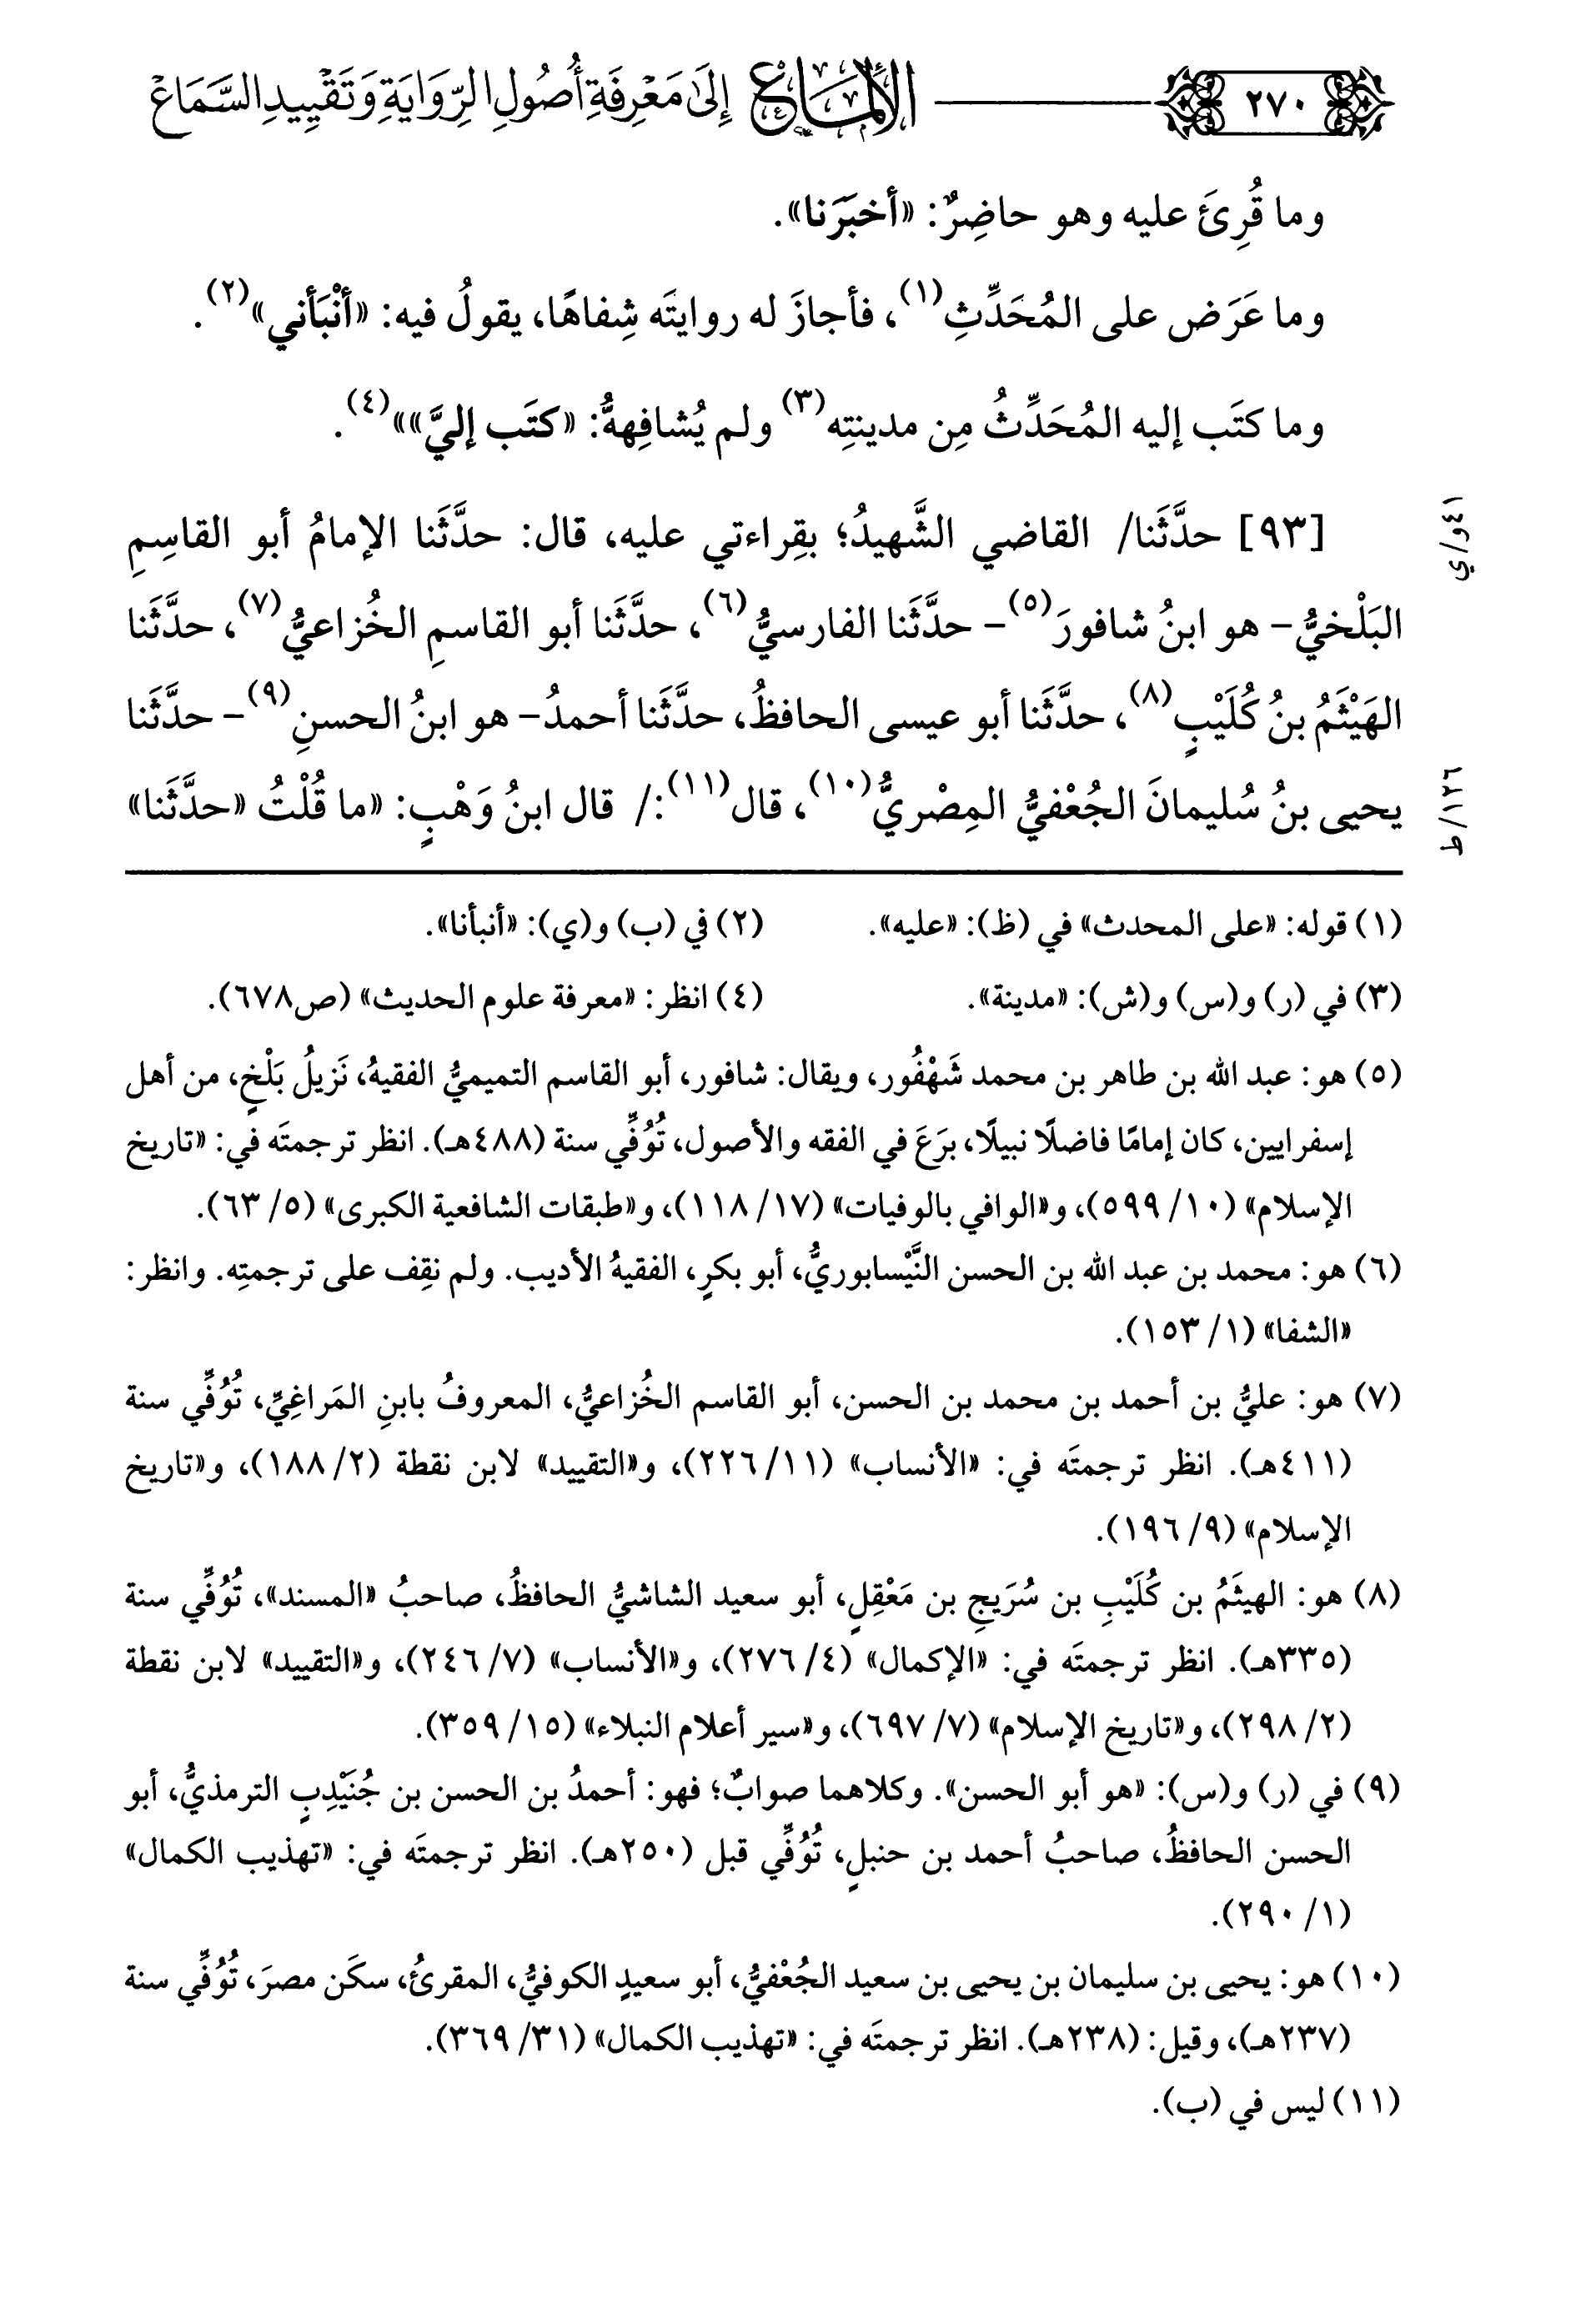 ٢٧٠
الإلماع إِلَىٰ مَعْرِفَةِ أُصُولِ الرِّوَايَةِ وَتَقْيِيدِ السَّمَاعِ
وما قُرِئَ عليه وهو حاضِرٌ: «أخبَرَنا».
وما عَرَض على المُحَدِّثِ(١)، فأجازَ له روايتَه شِفاهًا، يقولُ فيه: «أنْبَأني»(٢).
وما كتَب إليه المُحَدِّثُ مِن مدينتِه(٣) ولم يُشافِههُّ: «كتَب إليَّ»»(٤).
[٩٣] حدَّثَنا/ القاضي الشَّهيدُ؛ بقِراءتي عليه، قال: حدَّثَنا الإمامُ أبو القاسِمِ
٤١و/ي
البَلْخيُّ- هو ابنُ شافورَ(٥)- حدَّثَنا الفارسيُّ(٦)، حدَّثَنا أبو القاسمِ الخُزاعيُّ(٧)، حدَّثَنا
الهَيْثَمُ بنُ كُلَيْبٍ(٨)، حدَّثَنا أبو عيسى الحافظُ، حدَّثَنا أحمدُ- هو ابنُ الحسنِ(٩)- حدَّثَنا
يحيى بنُ سُليمانَ الجُعْفيُّ المِصْريُّ(١٠)، قال(١١):/ قال ابنُ وَهْبٍ: «ما قُلْتُ «حدَّثَنا»
١٢٦/ط
(١) قوله: «على المحدث» في (ظ): «عليه».
(٢) في (ب) و(ي): «أنبأنا».
(٣) في (ر) و(س) و(ش): «مدينة».
(٤) انظر: «معرفة علوم الحديث» (ص٦٧٨).
(٥) هو: عبد الله بن طاهر بن محمد شَهْفُور، ويقال: شافور، أبو القاسم التميميُّ الفقيهُ، نَزيلُ بَلْخٍ، من أهل
إسفرايين، كان إمامًا فاضلًا نبيلًا، برَعَ في الفقه والأصول، تُوُفِّي سنة (٤٨٨هـ). انظر ترجمتَه في: «تاريخ
الإسلام» (١٠/ ٥٩٩)، و«الوافي بالوفيات» (١٧/ ١١٨)، و«طبقات الشافعية الكبرى» (٥/ ٦٣).
(٦) هو: محمد بن عبد الله بن الحسن النَّيْسابوريُّ، أبو بكرٍ، الفقيهُ الأديب. ولم نقِف على ترجمتِه. وانظر:
«الشفا» (١/ ١٥٣).
(٧) هو: عليُّ بن أحمد بن محمد بن الحسن، أبو القاسم الخُزاعيُّ، المعروفُ بابنِ المَراغِيِّ، تُوُفِّي سنة
(٤١١هـ). انظر ترجمتَه في: «الأنساب» (١١/ ٢٢٦)، و«التقييد» لابن نقطة (٢/ ١٨٨)، و«تاريخ
الإسلام» (٩/ ١٩٦).
(٨) هو: الهيثَمُ بن كُلَيْبِ بن سُرَيجِ بن مَعْقِلٍ، أبو سعيد الشاشيُّ الحافظُ، صاحبُ «المسند»، تُوُفِّي سنة
(٣٣٥هـ). انظر ترجمتَه في: «الإكمال» (٤/ ٢٧٦)، و«الأنساب» (٧/ ٢٤٦)، و«التقييد» لابن نقطة
(٢/ ٢٩٨)، و«تاريخ الإسلام» (٧/ ٦٩٧)، و«سير أعلام النبلاء» (١٥/ ٣٥٩).
(٩) في (ر) و(س): «هو أبو الحسن». وكلاهما صوابٌ؛ فهو: أحمدُ بن الحسن بن جُنَيْدِبٍ الترمذيُّ، أبو
الحسن الحافظُ، صاحبُ أحمد بن حنبلٍ، تُوُفِّي قبل (٢٥٠هـ). انظر ترجمتَه في: «تهذيب الكمال»
(١/ ٢٩٠).
(١٠) هو: يحيى بن سليمان بن يحيى بن سعيد الجُعْفيُّ، أبو سعيدٍ الكوفيُّ، المقرئُ، سكَن مصرَ، تُوُفِّي سنة
(٢٣٧هـ)، وقيل: (٢٣٨هـ). انظر ترجمتَه في: «تهذيب الكمال» (٣١/ ٣٦٩).
(١١) ليس في (ب).